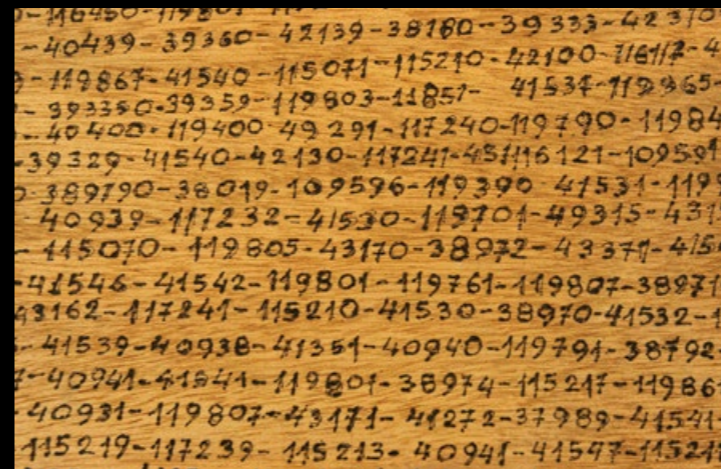 -40439-39360-42139-38180-39333-42370
-119867-41540-115071-115210-42100-
-393350-39359-119803-11851- 41537-119365-
-40400-119400-49291-117240-119790-11984
-39329-41540-42130-117241-431116121-109591
389790-38019-109596-119390 41531-119
40939-117232-41530-119701-49315-431
-115070-119805-43170-38972-43371-415
-41546-41542-119801-119761-119807-38971
43162-117241-115210-41530-38970-41532-1
-41539-40938-41351-40940-119791-38792
-40941-41541-119801-38974-115217-11986
-40931-119807-43171-41272-37989-41541
115219-117239-115213-40941-41547-11521